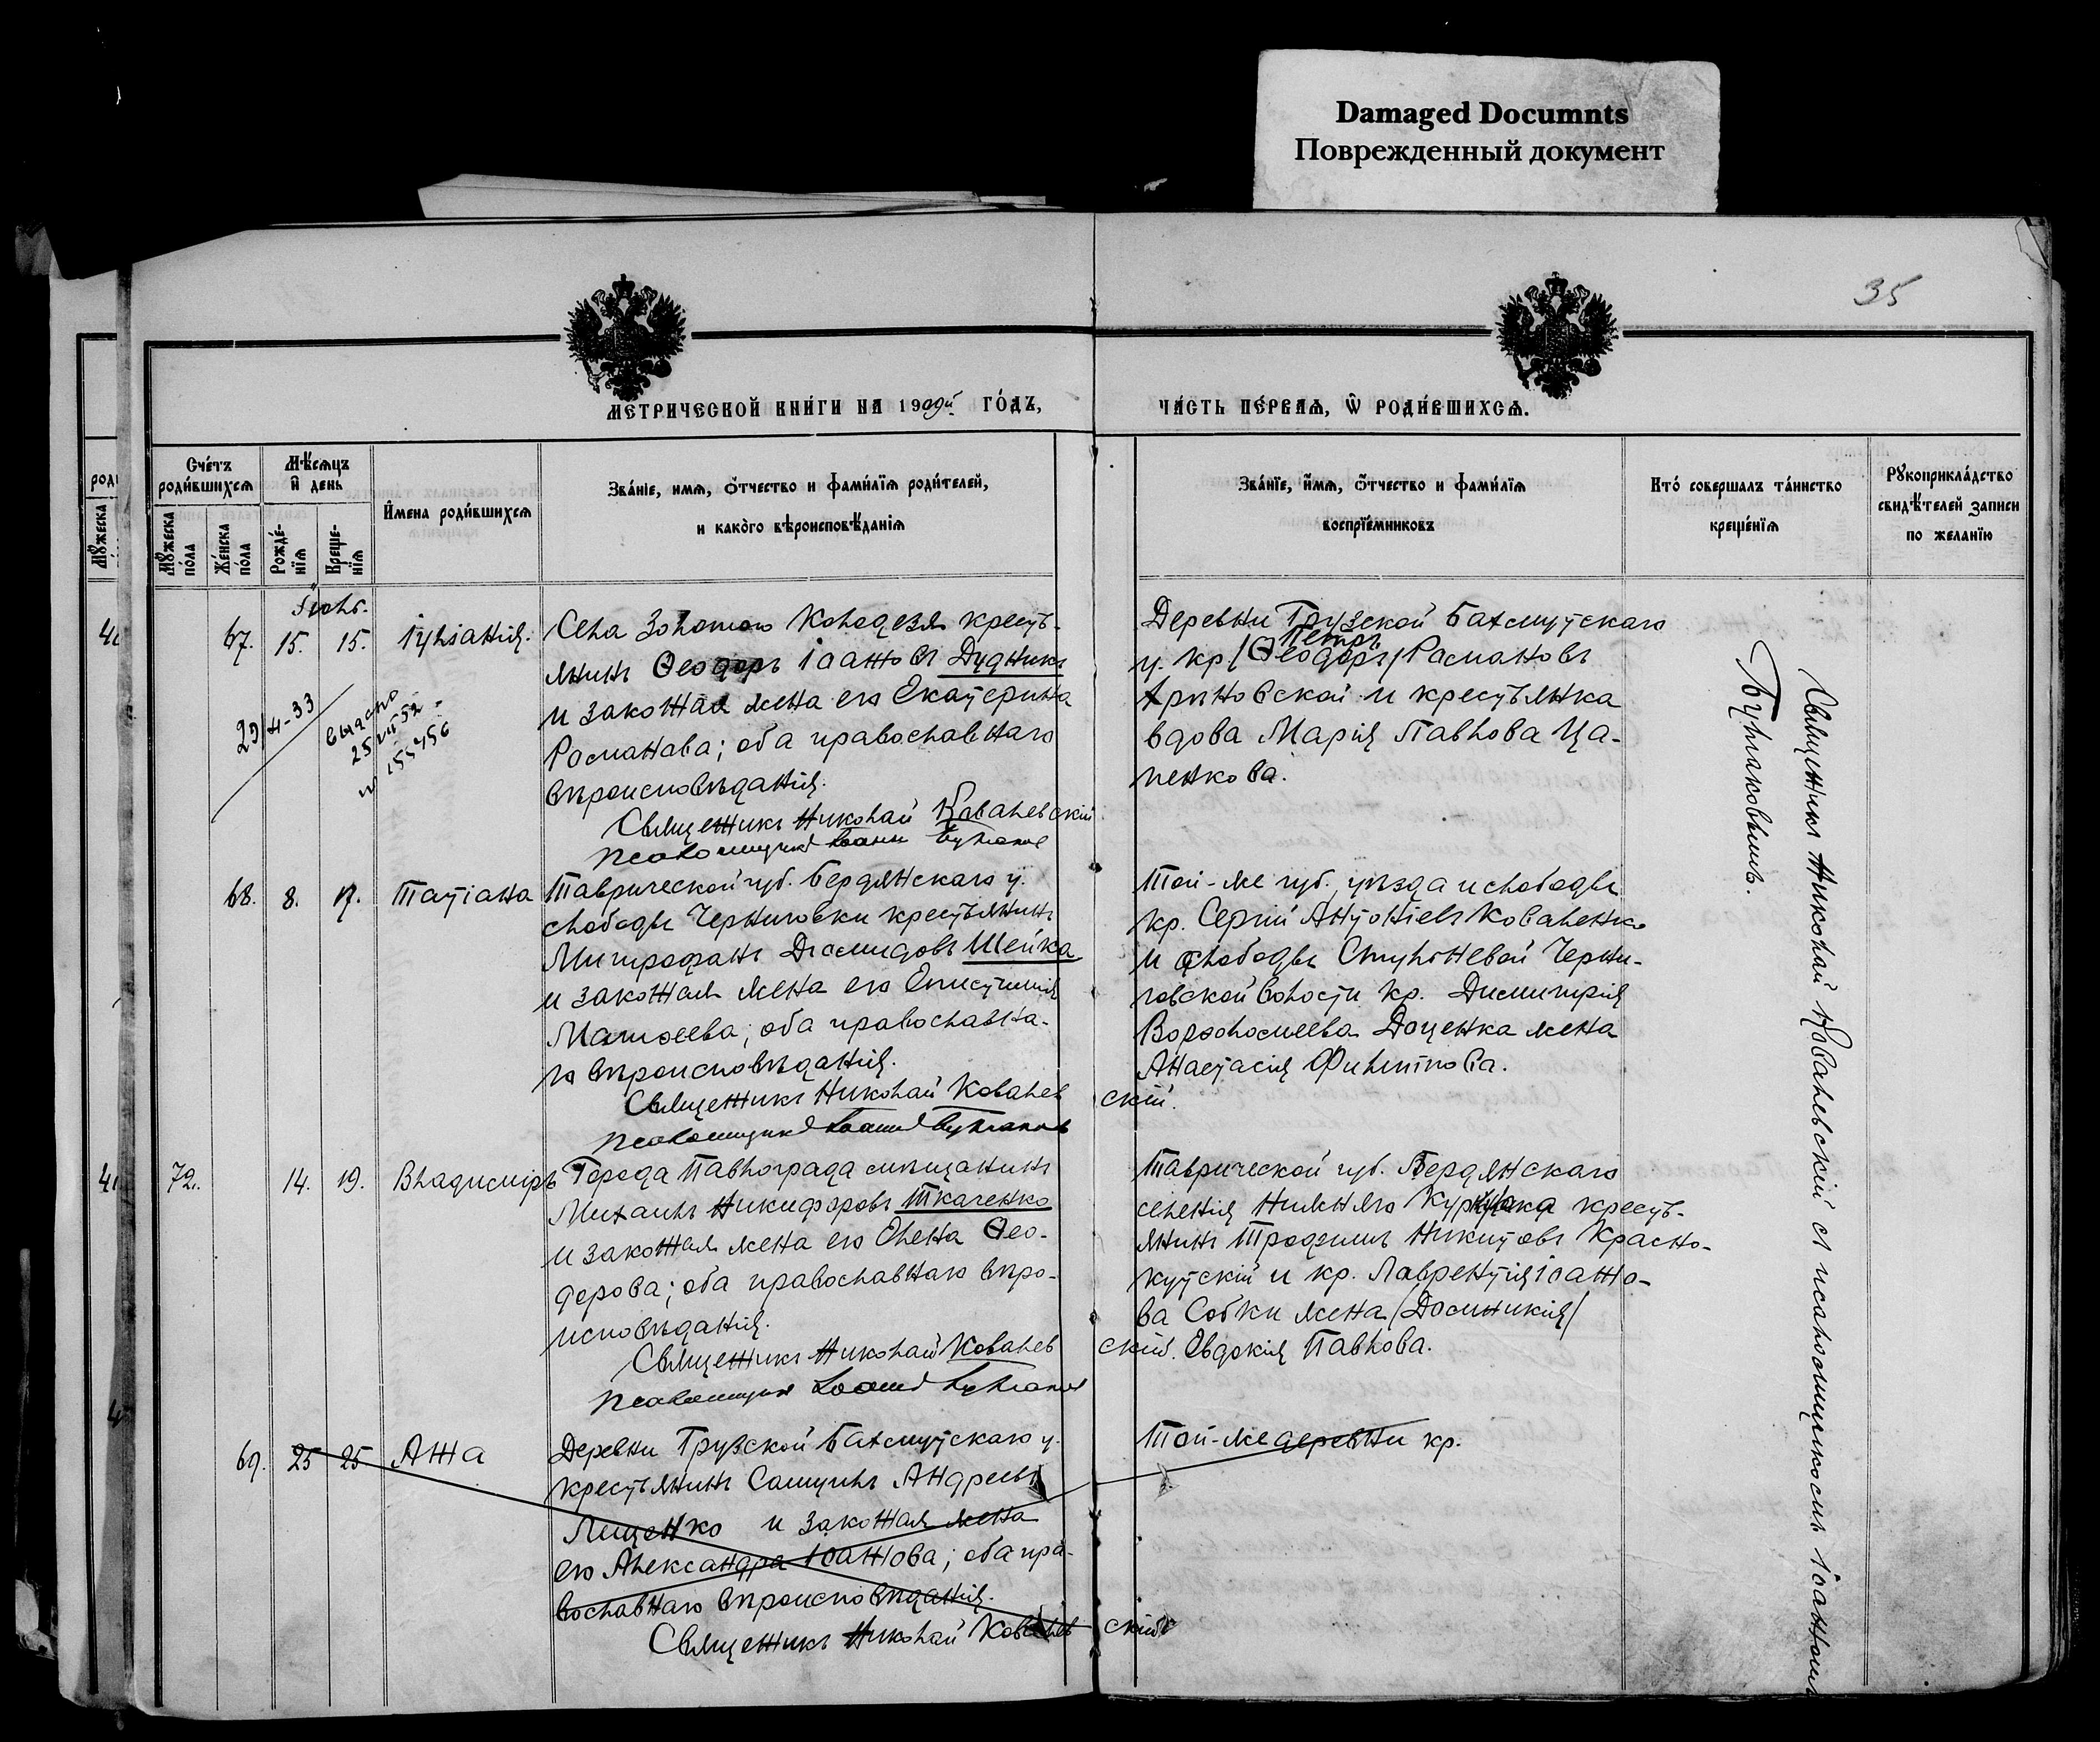 Damaged Documnts
Поврежденный документ
35
МЕТРИЧЕСКОЙ КНИГИ НА 1909й ГОДЪ,
ЧАСТЬ ПЕРВАЯ, Ѿ РОДИВШИХСЯ.
Счетъ родившихся
Мужеска пола
Женска пола
Мѣсяцъ и день
Рожденія
Крещенія
Имена родившихся
Званіе, имя, отчество и фамилія родителей,
и какого вѣроисповѣданія
Званіе, имя, отчество и фамилія
воспріемниковъ
Кто совершалъ таинство
крещенія
Рукоприкладство
свидѣтелей записи
по желанію
Іюнь.
67. 15. 15. Іуліанія.
Села Золотого Колодезя кресть-
янинъ Ѳеодоръ Іоанновъ Дудникъ
и законная жена его Екатерина
Романова; оба православнаго
вѣроисповѣданія.
Священникъ Николай Ковалевскій
Псаломщикъ Іоаннъ Булгаковъ
29/4-33
выдано
25 VII 52
№ 155456
Деревни Грузской Бахмутскаго
Петръ
у. кр. /Ѳеодоръ/ Романовъ
и крестьянка
вдова Марія Павлова Ца-
пенкова.
68. 8. 17. Татіана
Таврической губ. Бердянскаго у.
слободы Черниговки крестьянинъ
Митрофанъ Діомидовъ Шейка
и законная жена его Епистимія
Матѳеева; оба православна-
го вѣроисповѣданія.
Священникъ Николай Ковалевскій.
Псаломщикъ Іоаннъ Булгаковъ
Той-же губ., уѣзда и слободы
кр. Сергій Антоніевъ Коваленко
и слободы Стульневой Черни-
говской волости кр. Димитрія
Варѳоломеева Доценка жена
Анастасія Филиппова.
72. 14. 19. Владиміръ
Города Павлограда мѣщанинъ
Михаилъ Никифоровъ Ткаченко
и законная жена его Елена Ѳео-
дорова; оба православнаго вѣро-
исповѣданія.
Священникъ Николай Ковалевскій.
Псаломщикъ Іоаннъ Булгаковъ
Таврической губ. Бердянскаго
селенія Нижняго Куркулака кресть-
янинъ Трофимъ Никитовъ Красно-
кутскій и кр. Лаврентія Іоанно-
ва Собки жена /Домникія/
Евдокія Павлова.
69. 25 25 Анна
Деревни Грузской Бахмутскаго у.
крестьянинъ Самуилъ Андреевъ
Лященко и законная жена
его Александра Іоаннова; оба пра-
вославнаго вѣроисповѣданія.
Священникъ Николай Ковалевскій
Той-же деревни кр.
Священникъ Николай Ковалевскій съ псаломщикомъ Іоанномъ
Булгаковымъ.